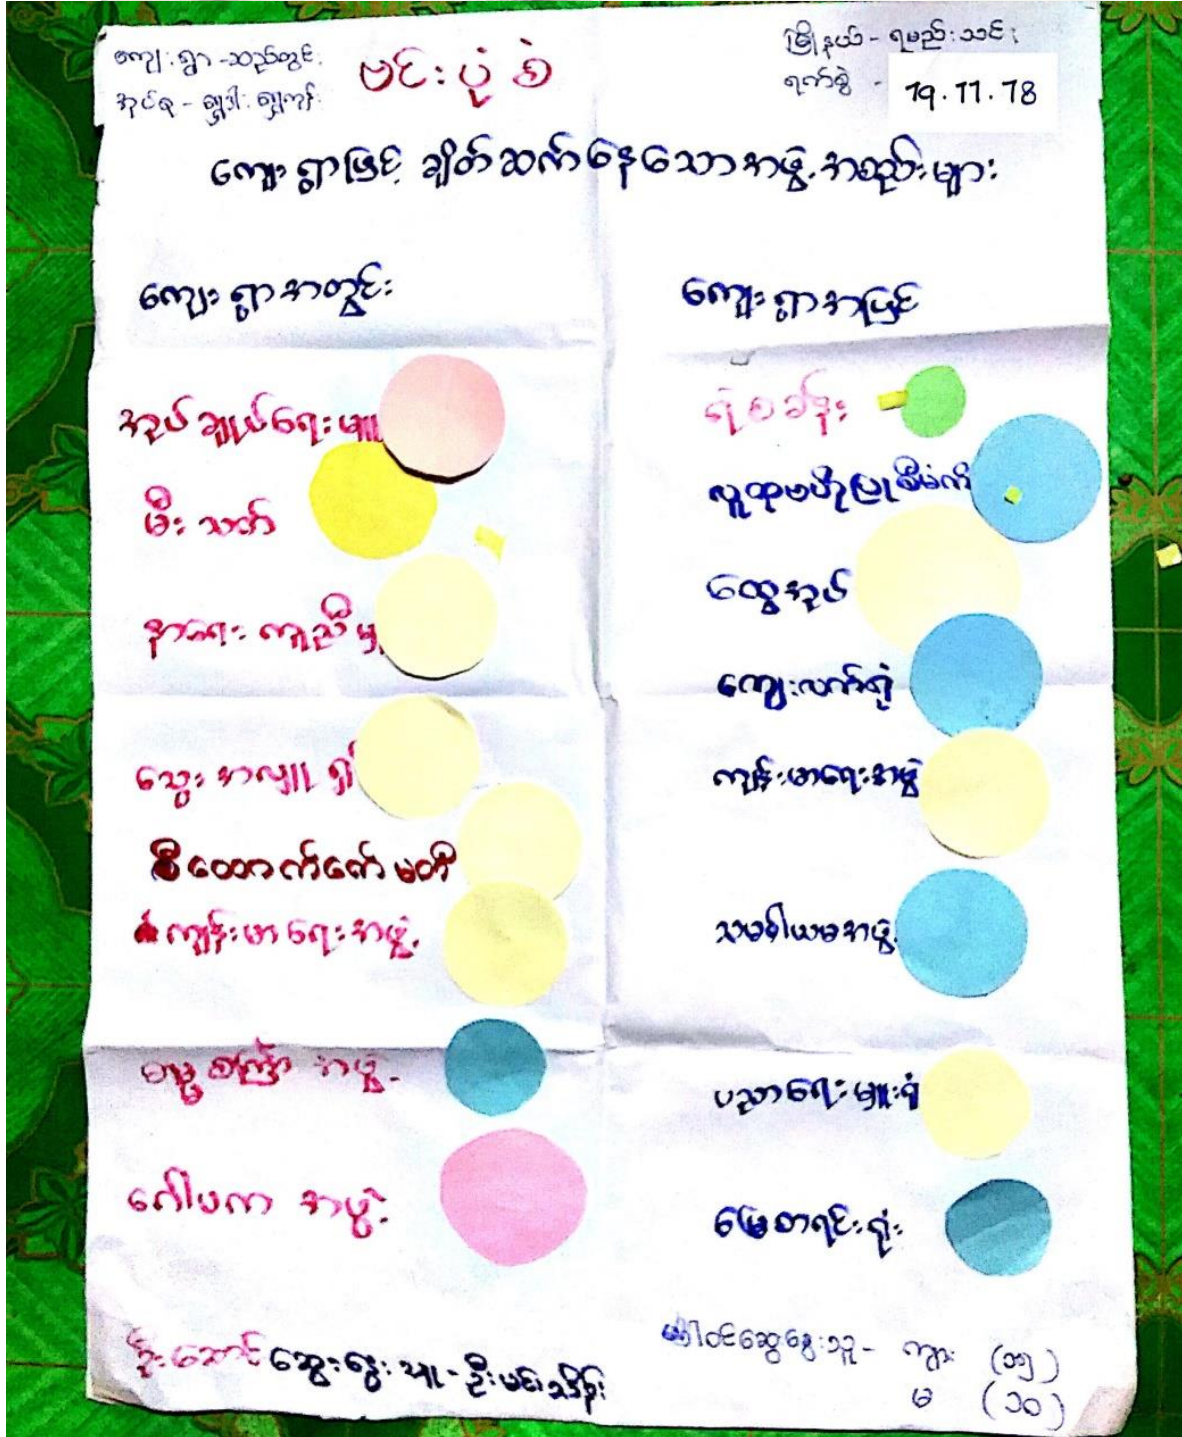 ကျေးရွာ - ဆည်တွင်း
အုပ်စု - ရှားကုန်း
ဗင်းပုံစံ
မြို့နယ် - ရမည်းသင်း
ရက်စွဲ - 19.11.18
ကျေးရွာဖြင့် ချိတ်ဆက်နေသောအဖွဲ့အစည်းများ
ကျေးရွာအတွင်း
ကျေးရွာအပြင်
အုပ်ချုပ်ရေးမှူး
မီးသတ်
နာရေးကူညီမှု
သွေးအလှူရှ
စီထောက်ကော်မတီ
ကျန်းမာရေးအဖွဲ့
ဓမ္မစကြာအဖွဲ့
ဂေါပကအဖွဲ့
ရဲစခန်း
လူထုဗဟိုပြုစီမံကိ
ထွေအုပ်
ကျေးလက်ရုံ
ကျန်းမာရေးအဖွဲ့
သမဝါယမအဖွဲ့
ပညာရေးမှူးရုံ
မြေစာရင်းရုံး
ဦးဆောင်ဆွေးနွေးသူ - ဦး
ပါဝင်ဆွေးနွေးသူ - ကျား (၁၅)
မ (၁၀)